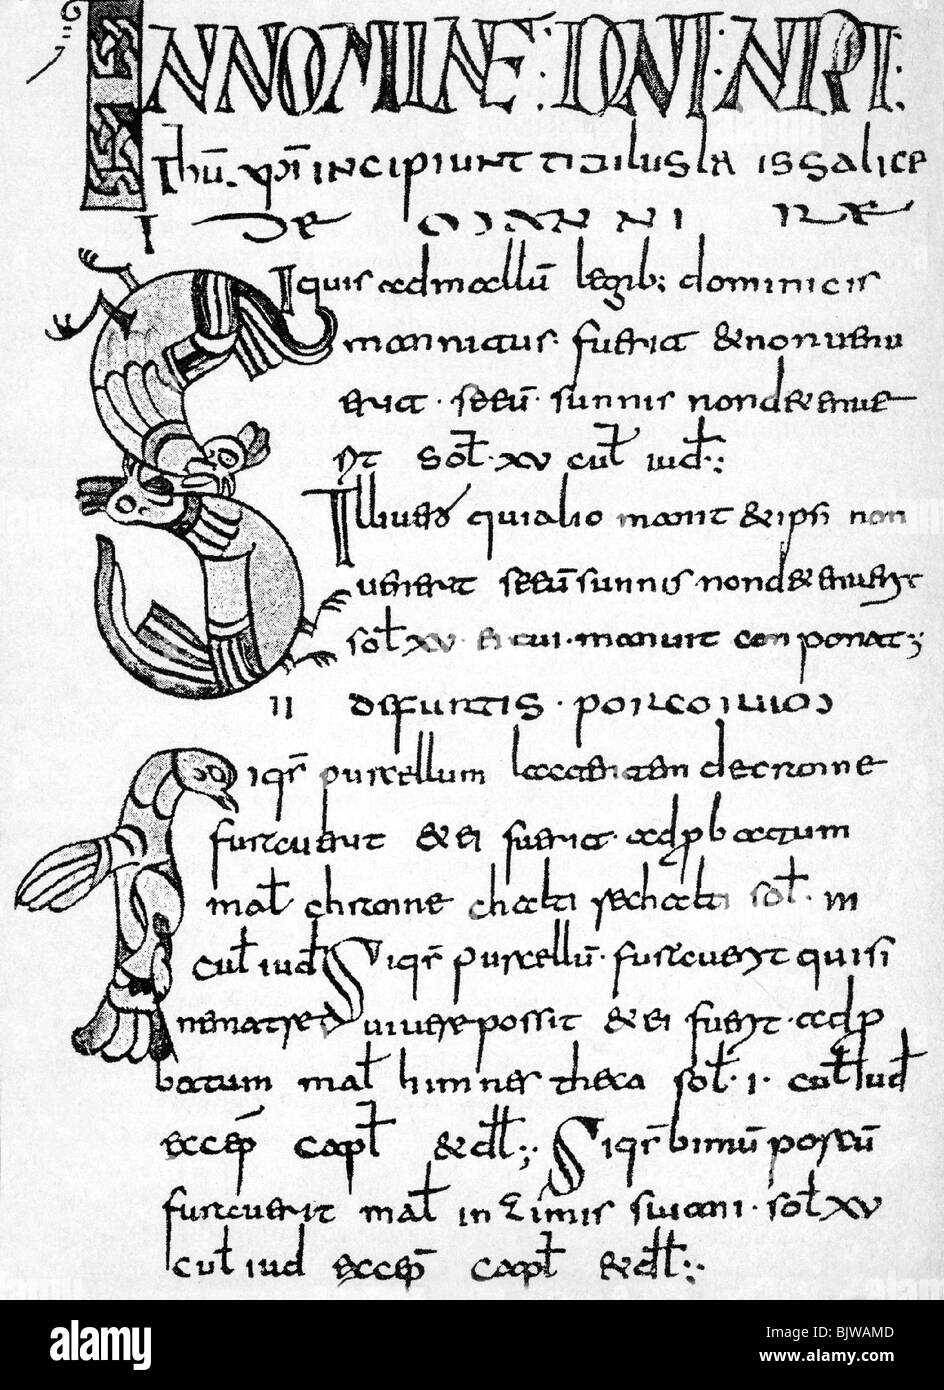 IN NOMINE : DNI : NRI :
Ihu xpi incipiunt titulus la is salice
I DE MANNI RE
Siquis ad mallu legib; dominicis
mannitus fuerit & non ven
erit seeu sunnis non detenue
rit sol xv cul iud
Ille vero qui alio mannit & ipsi non
venerit seeu sunnis non detenuerit
sol xv ei cui manuit conponat ;
II DE FURTIS PORCORUM
Siqs purcellum lactantem de crane
furauerit & ei fuerit adpbatum
mal chranne chalti rechalti sol III
cul iud Siqs purcellu furauerit qui si
ne matre uiuere possit & ei fuerit adp
batum mal himnes theca sol I cul iud
excep capl & dil Siqs bimu porcu
furauerit mal in zimis suiani sol xv
cul iud excep capl & dil
alamy
Image ID: BJWAMD
www.alamy.com